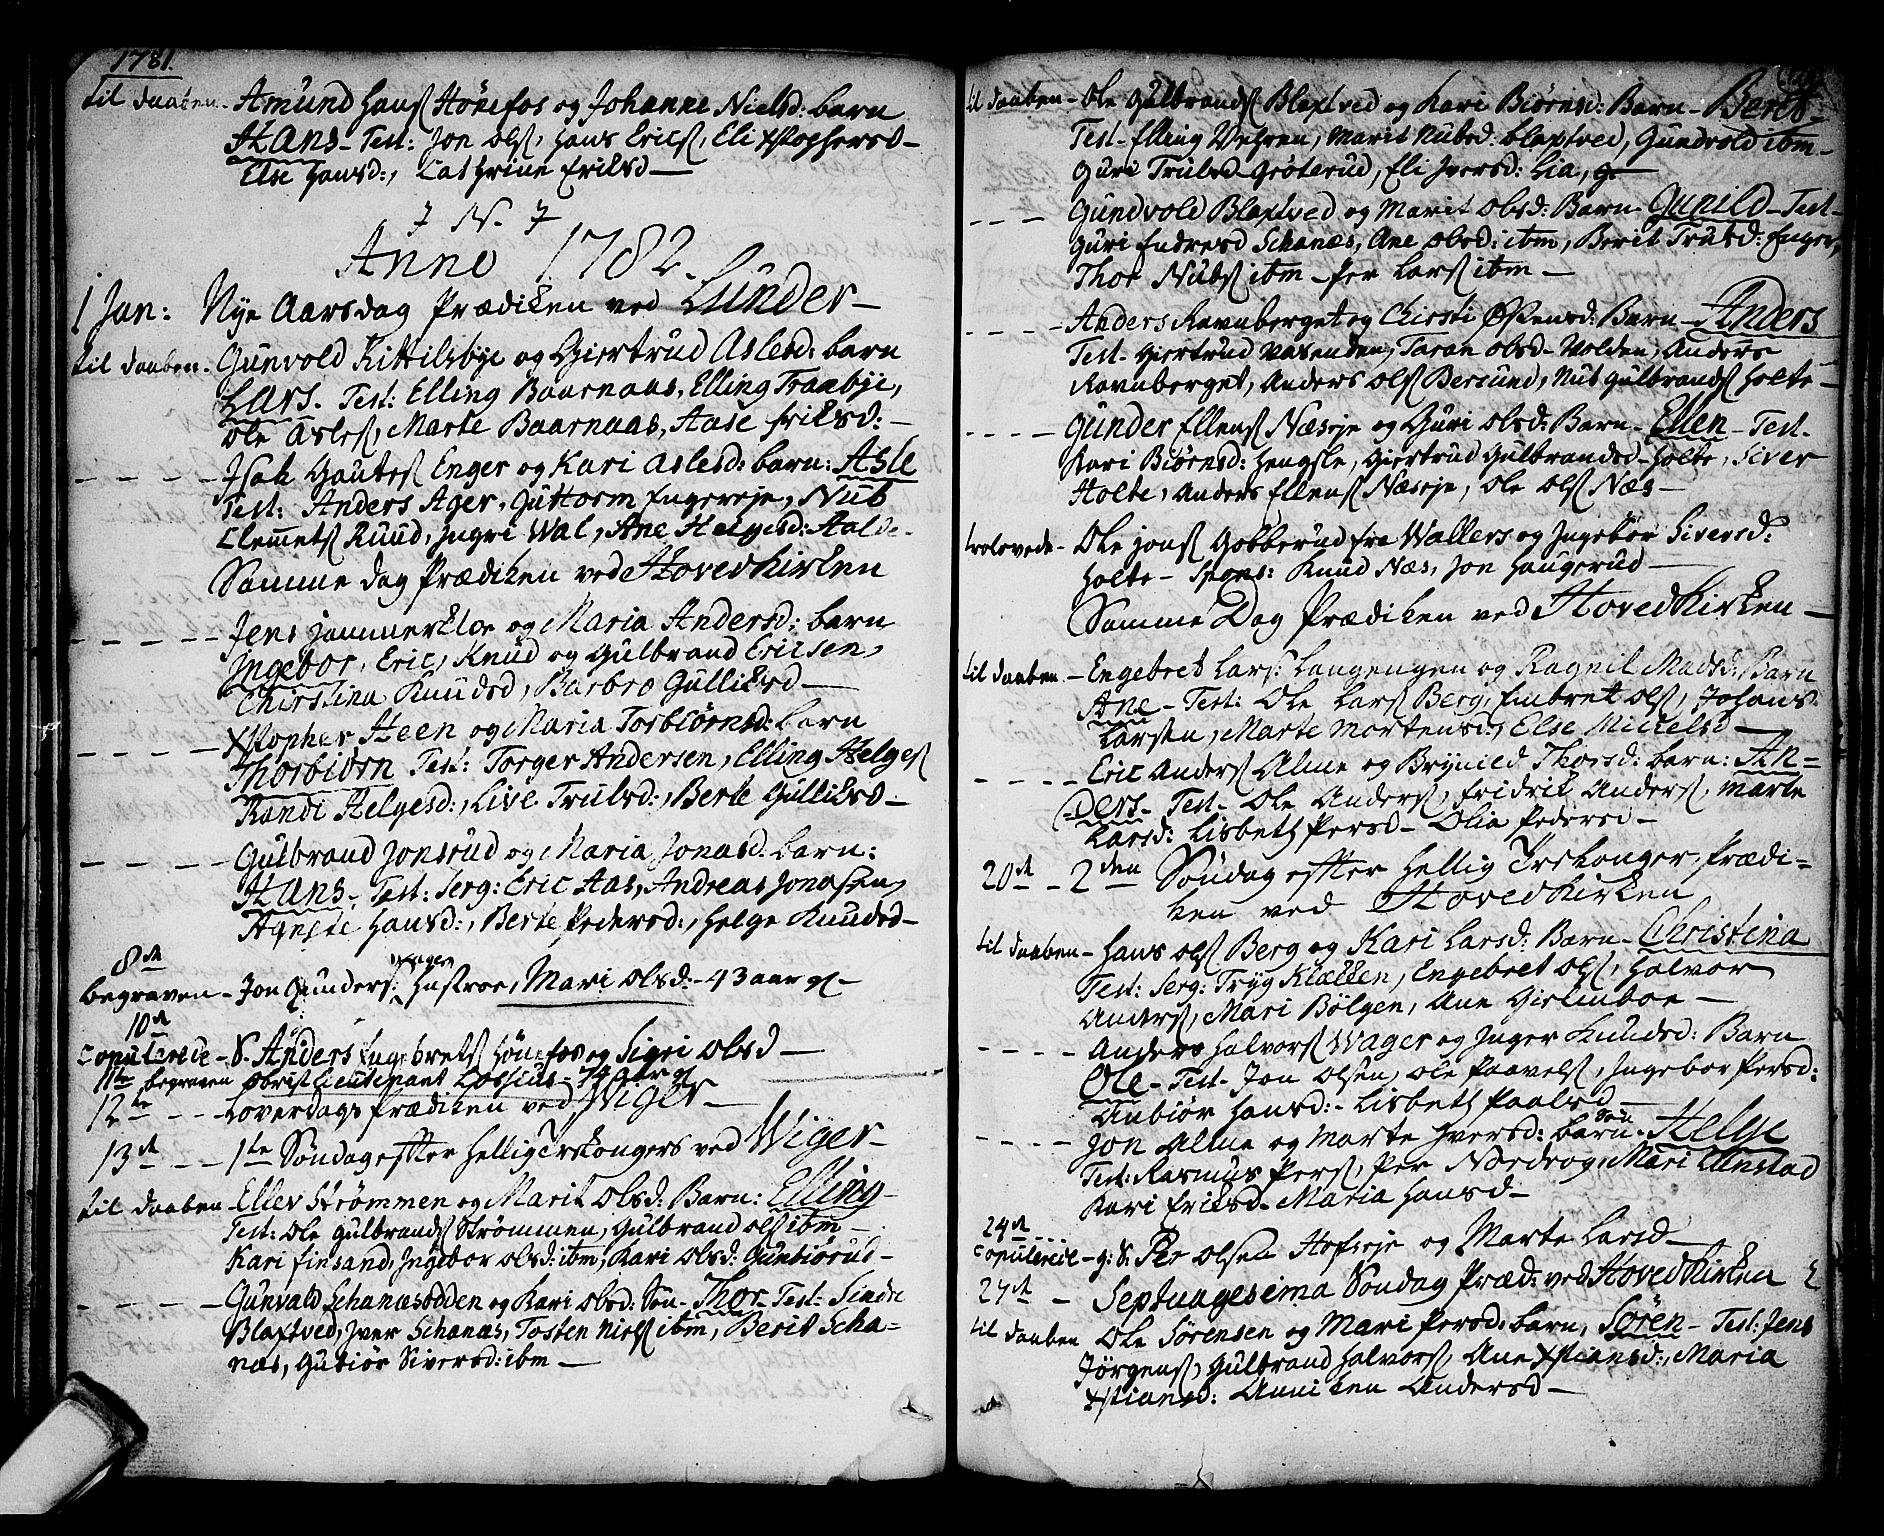 1781.
til daaben - Amund Hansſ Hönefos og Johanne Nielsd: barn
HANS - Test: Jon Olsſ, Hans Ericsſ, Eli Xstophersd -
Else Hansd:, Cathrine Eriksd -
J N. J
Anno 1782.
1 Jan: Nye Aarsdag Prædiken ved Lunder -
til daaben - Gunvold Kittilsbye og Giertrud Aslesd: barn
LARS. Test: Elling Baarnaas, Elling Traabye,
Ole Aslesſ, Marte Baarnaas, Aase Eriksd: -
- - - - Isak Gautesſ Enger og Kari Aslesd: barn: Asle
Test: Anders Ager, Guttorm Engereje, Nub
Clemetsſ Ruud, Ingri Wal, Ane Helgesd: Aalde -
Samme dag Prædiken ved Hovedkirken
- - - - Jens Jammerkloe og Maria Andersd: barn
Ingebor, Eric, Knud og Gulbrand Ericsen,
Christina Knudsd, Barbro Gulliksd -
- - - - Xstopher Heen og Maria Torbiörnsd: barn
Thorbiörn Test: Torger Andersen, Elling Helgesſ
Randi Helgesd:, Live Trulsd:, Berte Gulliksd -
- - - - Gulbrand Jonsrud og Maria Jonasd. barn:
HANS - Test: Serg: Eric Aas, Andreas Jonasen,
Agnete Hansd:, Berte Pedersd:, Helge Knudsd -
8de
begraven - Jon Gundersſ: Hustroe, Mari Olsd: - 43 aar gl -
10de
Copulerede - S. Anders Engebretsſ Hönefos og Sigri Olsd -
11te begraven Obristlieutenant Lossius - 74 aar gl
12te - - - Löverdags Prædiken ved Wiger -
13de - - - 1te Söndag efter Hellig 3 Kongers ved Wiger -
til daaben - Ellev Strömmen og Marit Olsd: Barn: Elling -
Test: Ole Gulbrandsſ Strömmen, Gulbrand Olsſ ibm -
Kari Finsand, Ingebor Olsd: ibm, Kari Olsd: Gunbiörud -
- - - - Gunvald Schanæsodden og Kari Olsd: Sön - Thor - Test: Sindre
Blaxtved, Jver Schanæs, Tosten Nielsſ ibm, Berit Scha=
næs, Gubiör Siversd: ibm -
til daaben - Ole Gulbrandsſ Blaxtved og Kari Biörnsd: Barn - Berit -
Test - Elling Vehren, Marit Nubsd: Blaxtved, Gundvold ibm -
Guri Trulsd Gröterud, Eli Jversd: Lia,
- - - Gundvold Blaxtved og Marit Olsd: Barn - Gunild - Test -
Guri Endresd Schanæs, Ane Olsd: ibm, Berit Trulsd: Enger,
Thor Nubsſ ibm - Per Larsſ ibm -
- - - - Anders Ravnberget og Chirsti Östensd: Barn - Anders
Test - Giertrud Vasenden, Taran Olsd - Volden, Anders
Ravnberget, Anders Olsſ Bersund, Nub Gulbrandsſ Holte -
- - - - Gunder Ellensſ Næseje og Guri Olsd: Barn - Ellen - Test -
Kari Biörnsd: Hengsle, Giertrud Gulbrandsd - Holte, Siver
Holte, Anders Ellensſ Næseje, Ole Olsſ Næs -
trolovede - Ole Jonsſ Gobberud fra Wallers og Ingebör Siversd:
Holte - Spons: Knud Næs, Jon Haugerud -
Samme Dag Prædiken ved Hovedkirken -
til daaben - Engebret Larsſ: Langengen og Ragnil Madsd: Barn
Ane - Test: Ole Larsſ Berg, Embret Olsſ, Johans
Larsen, Marte Mortensd:, Else Mickelsd -
- - - - Eric Andersſ Alme og Brynild Thorsd: barn: AN=
=DERS - Test - Ole Andersſ, Fridrik Andersſ, Marte
Larsd: Lisbeth Persd - Olia Pedersd -
20de - - 2den Söndag efter Hellig Trekonger Prædi=
ken ved Hovedkirken
til daaben - Hans Olsſ Berg og Kari Larsd: Barn - Christina
Test: Serg: Tryg Klækken, Engebret Olsſ, Halvor
Andersſ, Mari Bölgen, Ane Gislinboe -
- - - - Anders Halvorsſ Wager og Inger Knudsd: Barn
Ole - Test - Jon Olsen, Ole Paavelsſ, Ingebor Persd:
Anbiör Hansd: - Lisbeth Paalsd -
- - - - Jon Alme og Marte Jversd: barn Sön - Helge
Test: Rasmus Persſ, Per Nordrog, Mari Elnstad
Kari Eriksd - Maria Hansd -
24de - - -
Copulerede - g: S. Per Olsen Hofseje og Marte Larsd -
27de - Septuagesima Söndag Præd: ved Hovedkirken
til daaben Ole Sörensen og Mari Persd: barn, Sören - Test: Jens
Jörgensſ, Gulbrand Halvorsſ, Ane Xstiansd:, Maria
Xstiansd: Anniken Andersd -